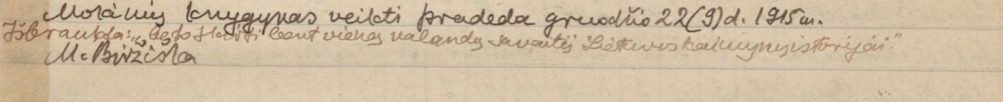 Mokinių knygynas veikti pradeda gruodžio 22(9)d. 1915 m.
Išbraukta: „ skirti bent vieną valandą savaitėj Lietuvos kaimynų istorijai."
M. Biržiška